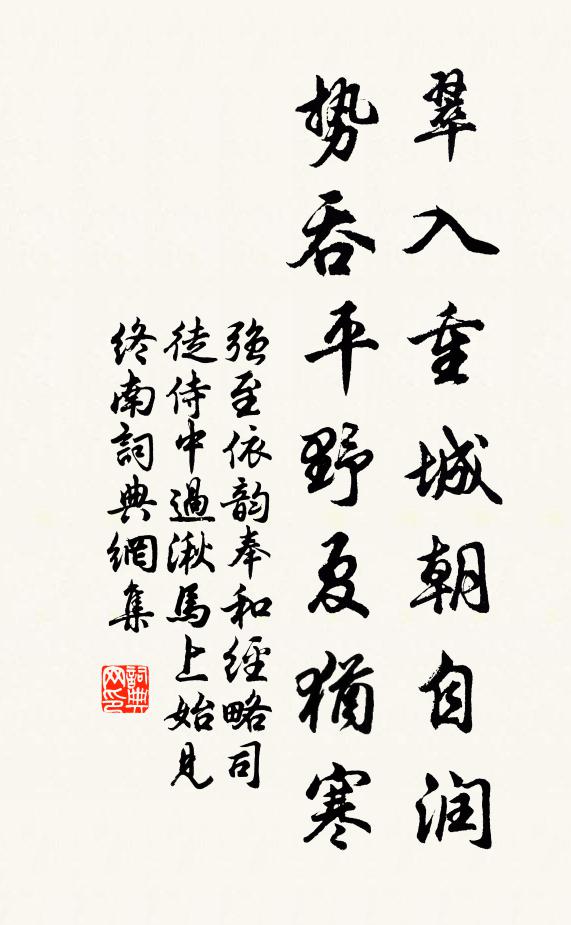 翠入重城朝自润
势吞平野夏犹寒
强至依韵奉和经略司
徒侍中過湫馬上始見
终南詞典網集
詞典网印